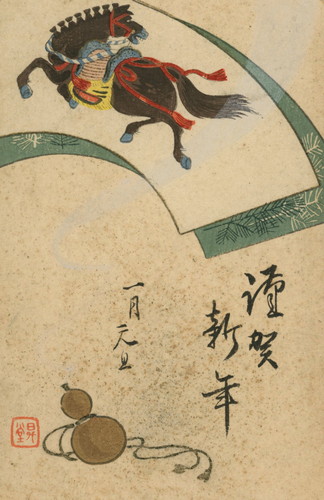 謹賀
新年
一月元旦
昇堂